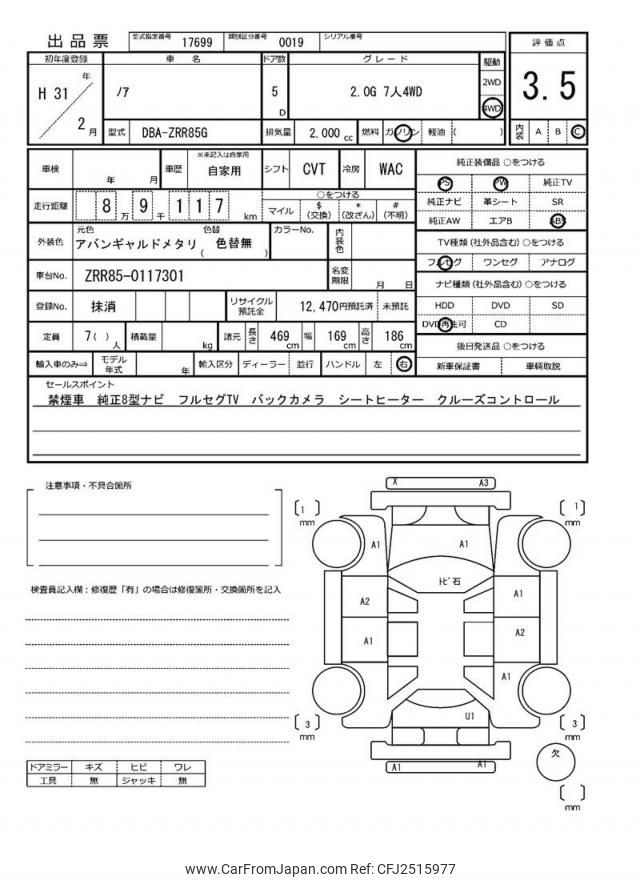 出品票 型式指定番号 17699 類別区分番号 0019 シリアル番号
評価点
3.5
内装 A B C
初年度登録 車名 ドア数 グレード 駆動
H 31 年 2 月 ノア 5 D 2.0G 7人4WD 2WD 4WD
型式 DBA-ZRR85G 排気量 2,000 cc 燃料 ガソリン 軽油 ( )
車検 年 月 車歴 ※未記入は自家用 自家用 シフト CVT 冷房 WAC
走行距離 8 万 9 千 1 1 7 km ○をつける
マイル $ (交換) * (改ざん) # (不明)
外装色 元色 アバンギャルドメタリ 色替 ( 色替無 ) カラーNo. 内装色
車台No. ZRR85-0117301 名変期限 月 日
登録No. 抹消 リサイクル預託金 12,470円預託済 未預託
定員 7( ) 人 積載量 kg 諸元 長さ 469 cm 幅 169 cm 高さ 186 cm
輸入車のみ⇒ モデル年式 年 輸入区分 ディーラー 並行 ハンドル 左 右
純正装備品 ○をつける
PS PW 純正TV
純正ナビ 革シート SR
純正AW エアB ABS
TV種類(社外品含む)○をつける
フルセグ ワンセグ アナログ
ナビ種類(社外品含む)○をつける
HDD DVD SD
DVD再生可 CD
後日発送品 ○をつける
新車保証書 車輌取説
セールスポイント
禁煙車 純正8型ナビ フルセグTV バックカメラ シートヒーター クルーズコントロール
注意事項・不具合箇所
検査員記入欄:修復歴「有」の場合は修復箇所・交換箇所を記入
ドアミラー キズ ヒビ ワレ
工具 無 ジャッキ 無
X A3
[ 1 ] mm
[ 1 ] mm
A1 A1
トビ石
A2 A1
A1 A2
A1
U1
[ 3 ] mm
[ 3 ] mm
A1 A1
欠
[ ] mm
www.CarFromJapan.com Ref: CFJ2515977